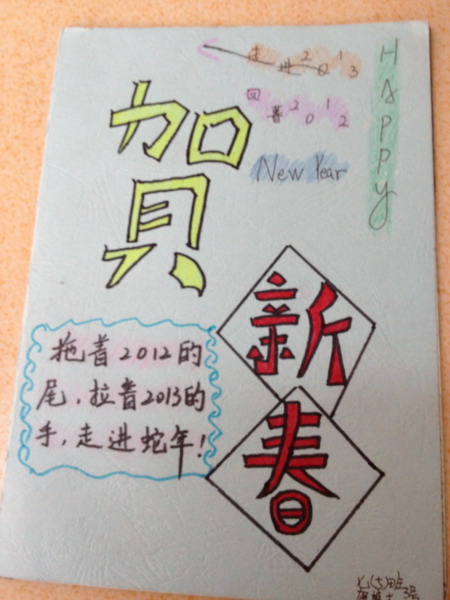 走进2013
回首2012
HAPPY
New Year
賀
新
春
拖着2012的
尾,拉着2013的
手,走进蛇年!